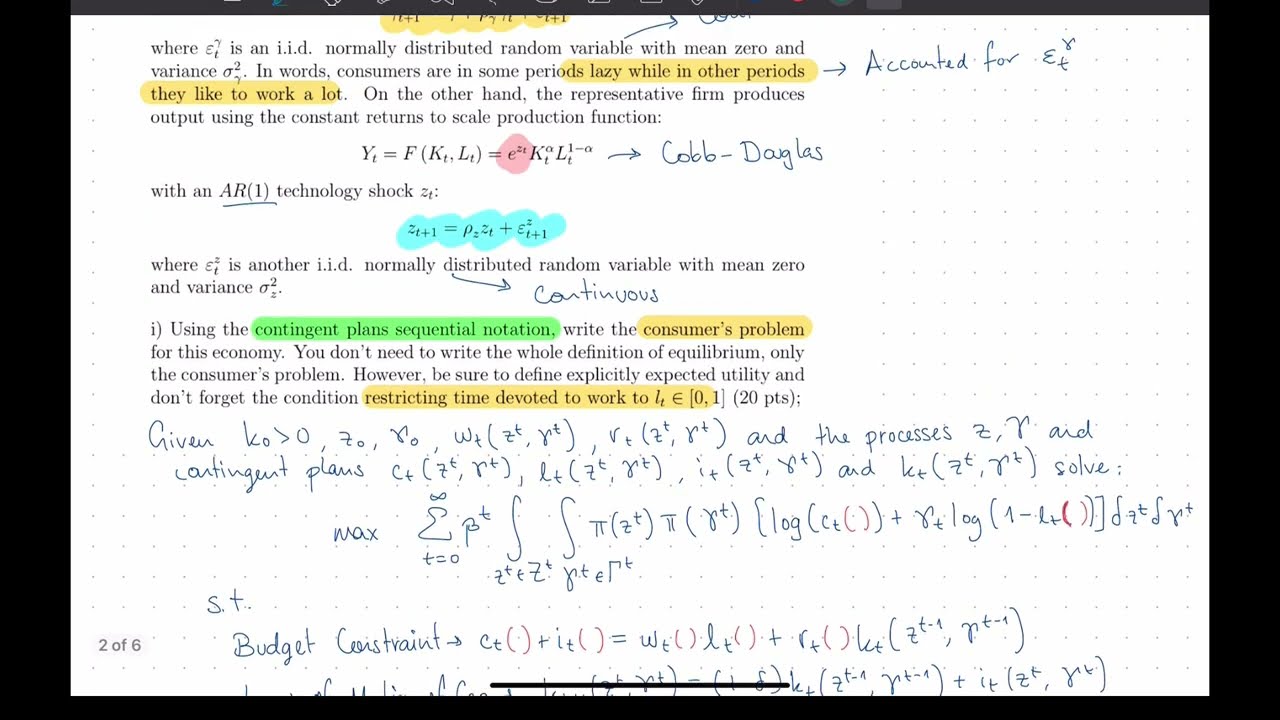 where εₜᵞ is an i.i.d. normally distributed random variable with mean zero and
variance σᵧ². In words, consumers are in some periods lazy while in other periods → Accounted for εₜᵞ
they like to work a lot. On the other hand, the representative firm produces
output using the constant returns to scale production function:
Yₜ = F (Kₜ, Lₜ) = e^{zₜ} Kₜ^α Lₜ^{1−α} → Cobb-Douglas
with an AR(1) technology shock zₜ:
zₜ₊₁ = ρ_z zₜ + ε^z_{t+1}
where εₜ^z is another i.i.d. normally distributed random variable with mean zero
and variance σ_z².
→ Continuous
i) Using the contingent plans sequential notation, write the consumer's problem
for this economy. You don't need to write the whole definition of equilibrium, only
the consumer's problem. However, be sure to define explicitly expected utility and
don't forget the condition restricting time devoted to work to lₜ ∈ [0, 1] (20 pts);
Given k₀>0, z₀, γ₀, wₜ(zᵗ, γᵗ), rₜ(zᵗ, γᵗ) and the processes z, γ and
contingent plans cₜ(zᵗ, γᵗ), lₜ(zᵗ, γᵗ), iₜ(zᵗ, γᵗ) and kₜ(zᵗ, γᵗ) solve:
max ∑_{t=0}^{∞} βᵗ ∫_{zᵗ∈Zᵗ} ∫_{γᵗ∈Γᵗ} π(zᵗ) π(γᵗ) [log(cₜ()) + γₜ log(1 − lₜ())] dzᵗ dγᵗ
s.t.
Budget Constraint → cₜ() + iₜ() = wₜ() lₜ() + rₜ() kₜ(zᵗ⁻¹, γᵗ⁻¹)
2 of 6
kₜ(zᵗ⁻¹, γᵗ⁻¹) + iₜ(zᵗ, γᵗ)